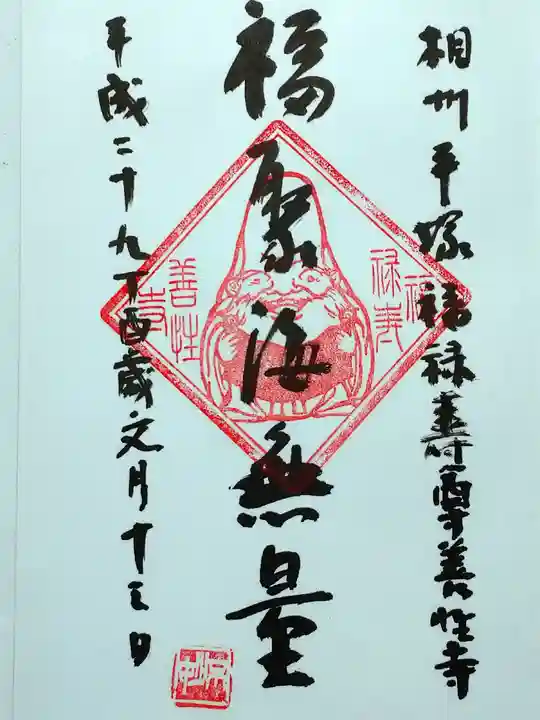 相州平塚福禄寿尊善性寺
福聚海無量
平成二十九丁酉歳文月十三日
福
禄寿
善性
寺